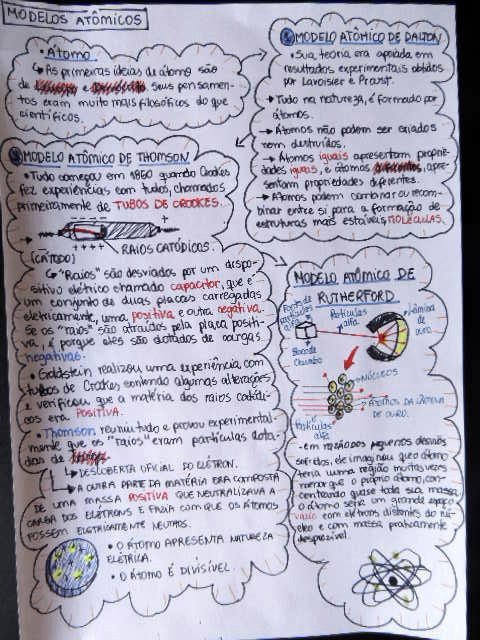 MODELOS ATÔMICOS
• Átomo
↳ As primeiras ideias de átomo são
de e seus pensamen-
tos eram muito mais filosóficos do que
científicos.
MODELO ATÔMICO DE DALTON
• Sua teoria era apoiada em
resultados experimentais obtidos
por Lavoisier e Proust.
→ Tudo na natureza, é formado por
átomos.
→ Átomos não podem ser criados
nem destruídos.
→ Átomos iguais apresentam proprie-
dades iguais, e átomos apre-
sentam propriedades diferentes.
→ Átomos podem combinar ou recom-
binar entre si para a formação de
estruturas mais estáveis MOLÉCULAS.
MODELO ATÔMICO DE THOMSON
• Tudo começou em 1860 quando Crookes
fez experiências com tubos, chamados
primeiramente de TUBOS DE CROOKES.
- +
+ + + +
RAIOS CATÓDICOS.
(CÁTODO)
↳ "Raios" são desviados por um dispo-
sitivo elétrico chamado capacitor, que é
um conjunto de duas placas carregadas
eletricamente, uma positiva e outra negativa.
Se os "raios" são atraídos pela placa positi-
va, é porque eles são dotados de cargas
negativas.
• Goldstein realizou uma experiência com
tubos de Crookes contendo algumas alterações
e verificou que a matéria dos raios catódi-
cos era POSITIVA.
• Thomson reuniu tudo e provou experimental-
mente que os "raios" eram partículas dota-
das de
↳ DESCOBERTA OFICIAL DO ELÉTRON.
↳ A OUTRA PARTE DA MATÉRIA ERA COMPOSTA
DE UMA MASSA POSITIVA QUE NEUTRALIZAVA A
CARGA DOS ELÉTRONS E FAZIA COM QUE OS ÁTOMOS
FOSSEM ELETRICAMENTE NEUTROS.
• O ÁTOMO APRESENTA NATUREZA
ELÉTRICA.
• O ÁTOMO É DIVISÍVEL.
MODELO ATÔMICO DE
RUTHERFORD.
Fonte de
partículas
alfa
Partículas
alfa
Lâmina de
ouro.
Bloco de
Chumbo
NÚCLEOS
ÁTOMOS DA LÂMINA
DE OURO.
Partículas
alfa
- em razão dos pequenos desvios
sofridos, ele imaginou que o átomo
teria uma região muitas vezes
menor que o próprio átomo, con-
centrando quase toda sua massa.
O átomo seria um grande espaço
vazio com elétrons distantes do nú-
cleo e com massa praticamente
desprezível.